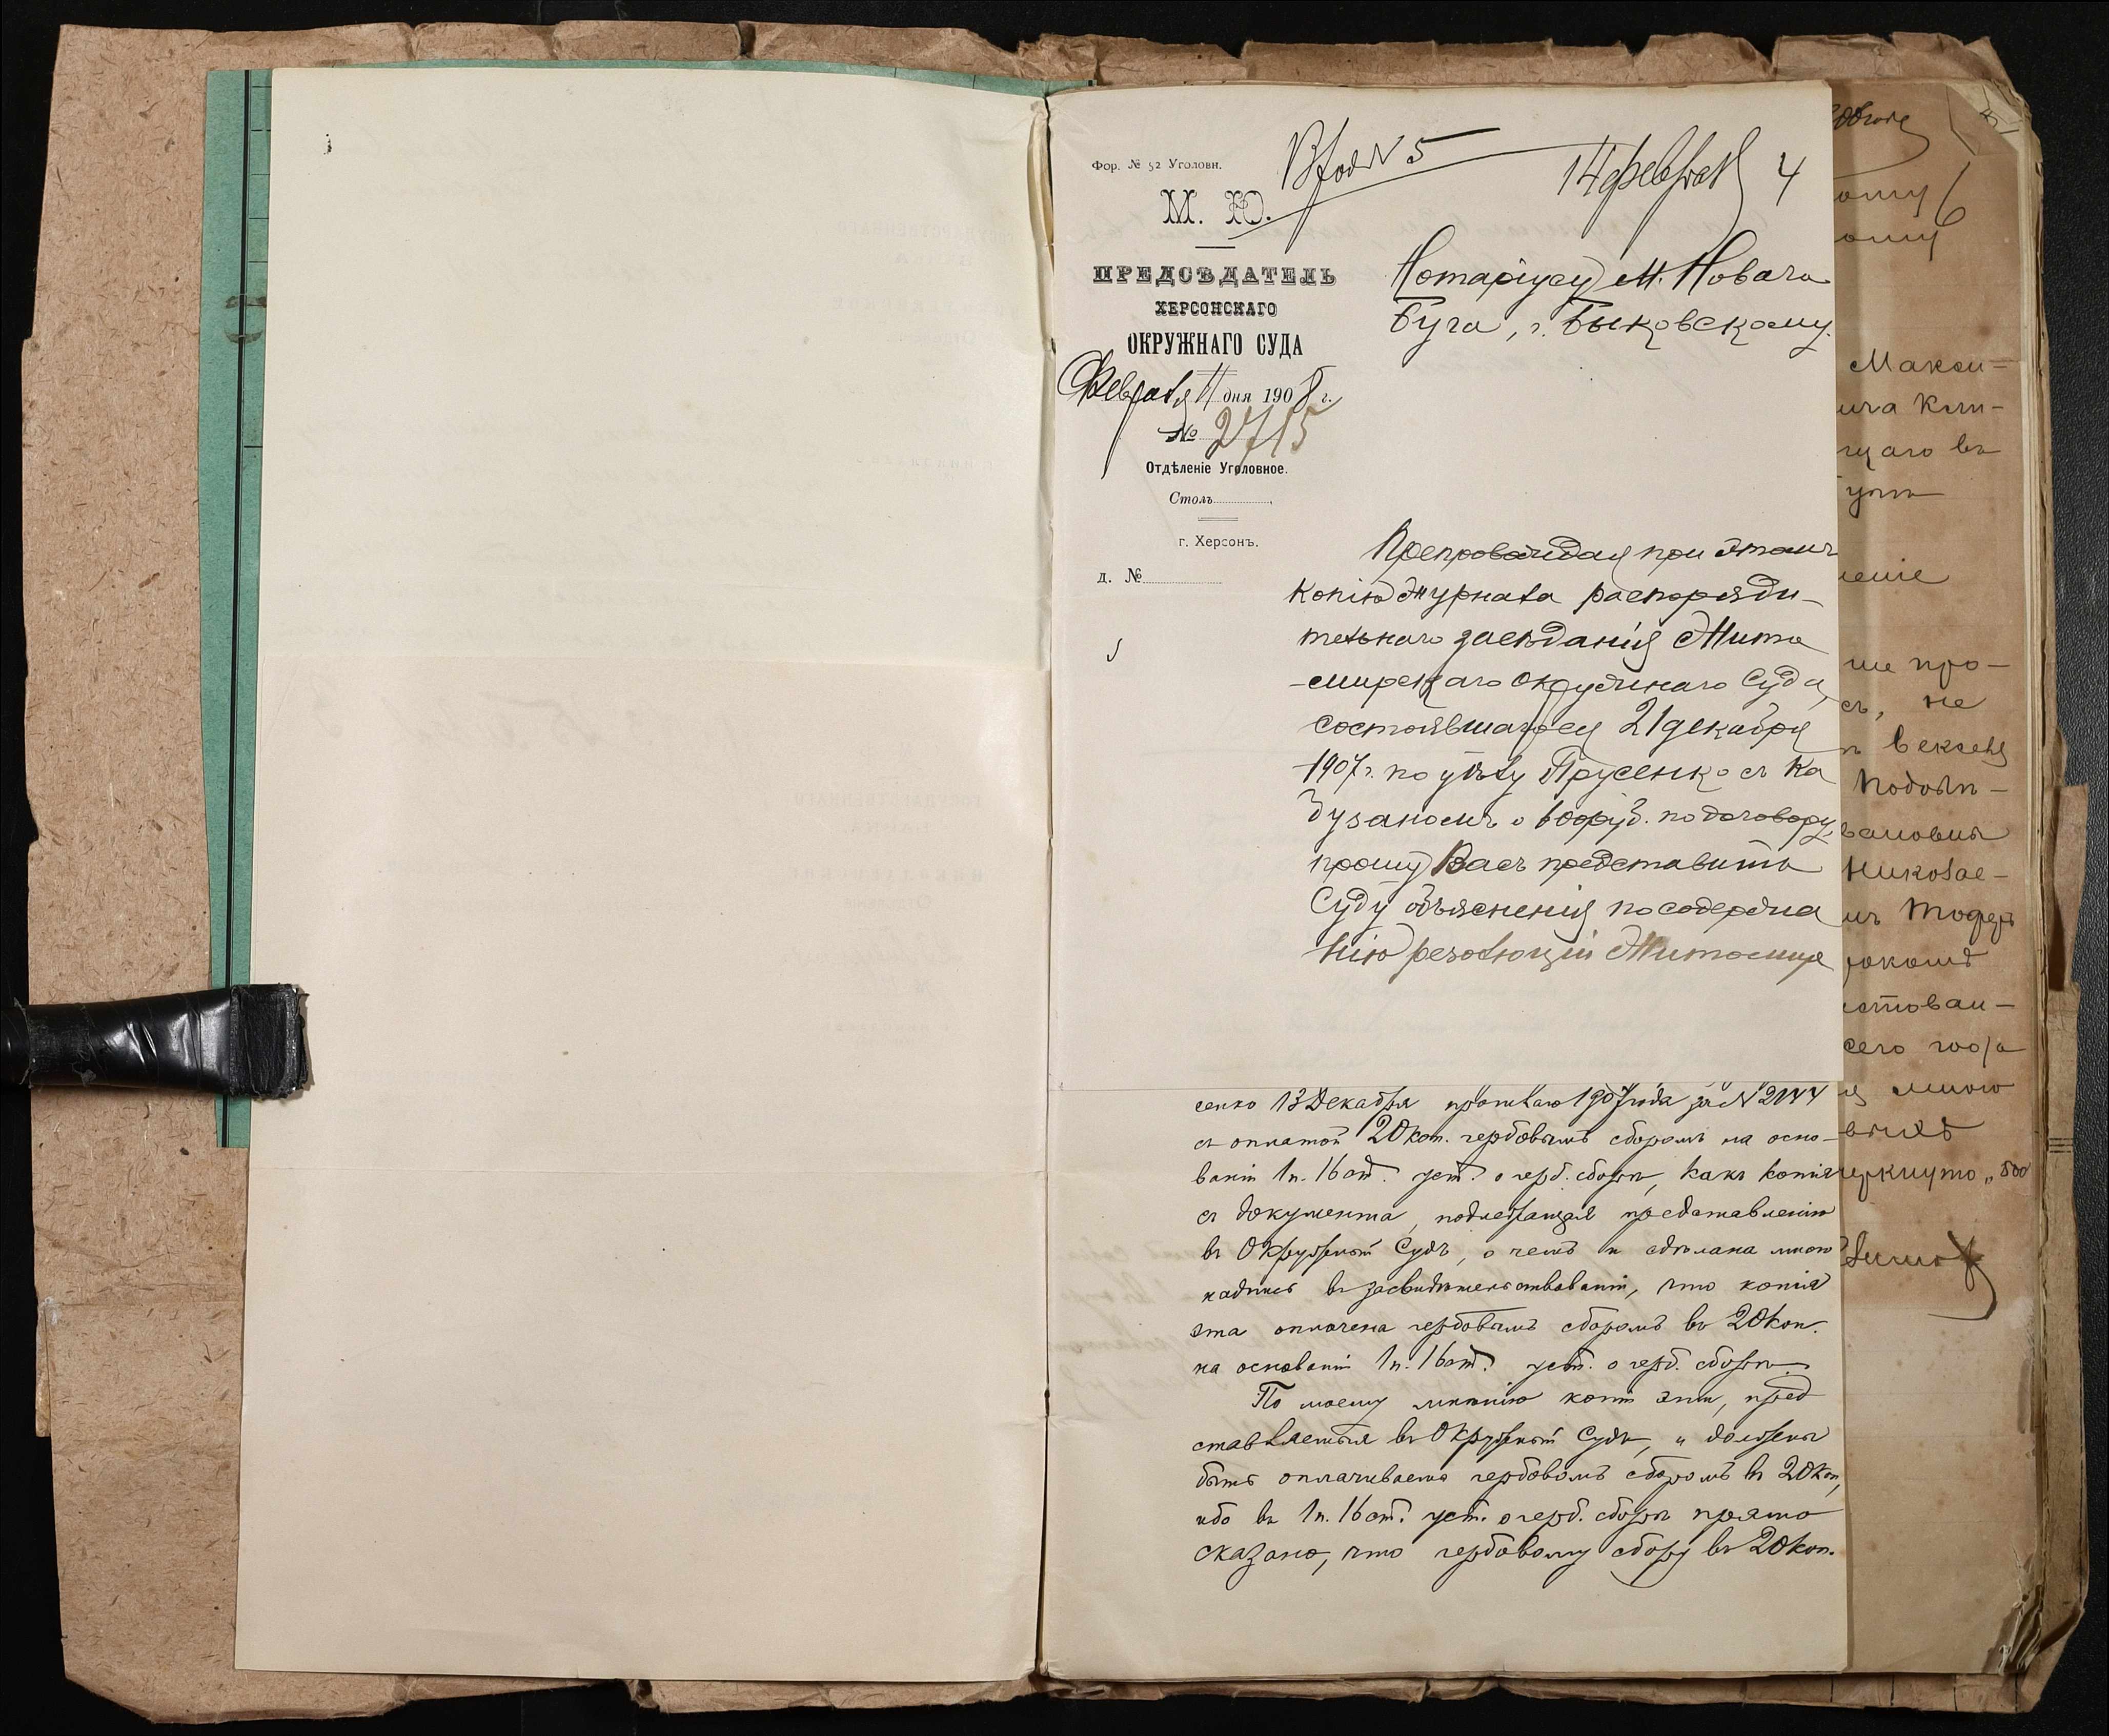 Фор. № 52 Уголовн.
Вход № 5
14 февраля 4
М. Ю.
ПРЕДСѢДАТЕЛЬ
ХЕРСОНСКАГО
ОКРУЖНАГО СУДА
Февраля 11 дня 1908 г.
№ 2715
Отдѣленіе Уголовное.
Столъ
г. Херсонъ.
д. №
Нотаріусу м. Новаго
Буга, г. Быковскому.
Препровождая при этомъ
копію журнала распоряди-
тельнаго засѣданія Жито
-мирскаго Окружнаго Суда,
состоявшагося 21 декабря
1907 г. по дѣлу Прусенко съ Ка
дузаномъ о 600 руб. по договору,
прошу Васъ представить
Суду объясненія по содержа
нію резолюціи Житомир
сенко 13 Декабря прошлаго 1907 года за № 2144
съ оплатой 20 коп. гербовымъ сборомъ на осно-
ваніи 1 п. 16 ст. уст. о герб. сборѣ, какъ копія
съ документа, подлежащая представленію
въ Окружный Судъ, о чемъ и сдѣлана мною
надпись въ засвидѣтельствованіи, что копія
эта оплачена гербовымъ сборомъ въ 20 коп.
на основаніи 1 п. 16 ст. уст. о герб. сборѣ.
По моему мнѣнію копіи эти, пред
ставляемыя въ Окружный Судъ, и должны
быть оплачиваемы гербовымъ сборомъ въ 20 коп,
ибо въ 1 п. 16 ст. уст. о герб. сборѣ прямо
сказано, что гербовому сбору въ 20 коп.
Макси-
щаго въ
ше про-
не
векселя
Николае-
сего года
мною